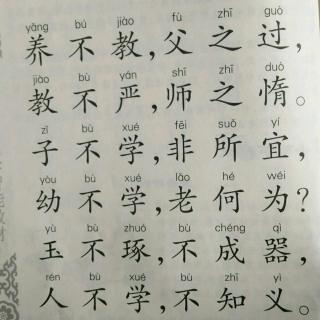 yǎng bú jiào fù zhī guò
养不教，父之过，
jiào bù yán shī zhī duò
教不严，师之惰。
zǐ bù xué fēi suǒ yí
子不学，非所宜，
yòu bù xué lǎo hé wéi
幼不学，老何为？
yù bù zhuó bù chéng qì
玉不琢，不成器，
rén bù xué bù zhī yì
人不学，不知义。